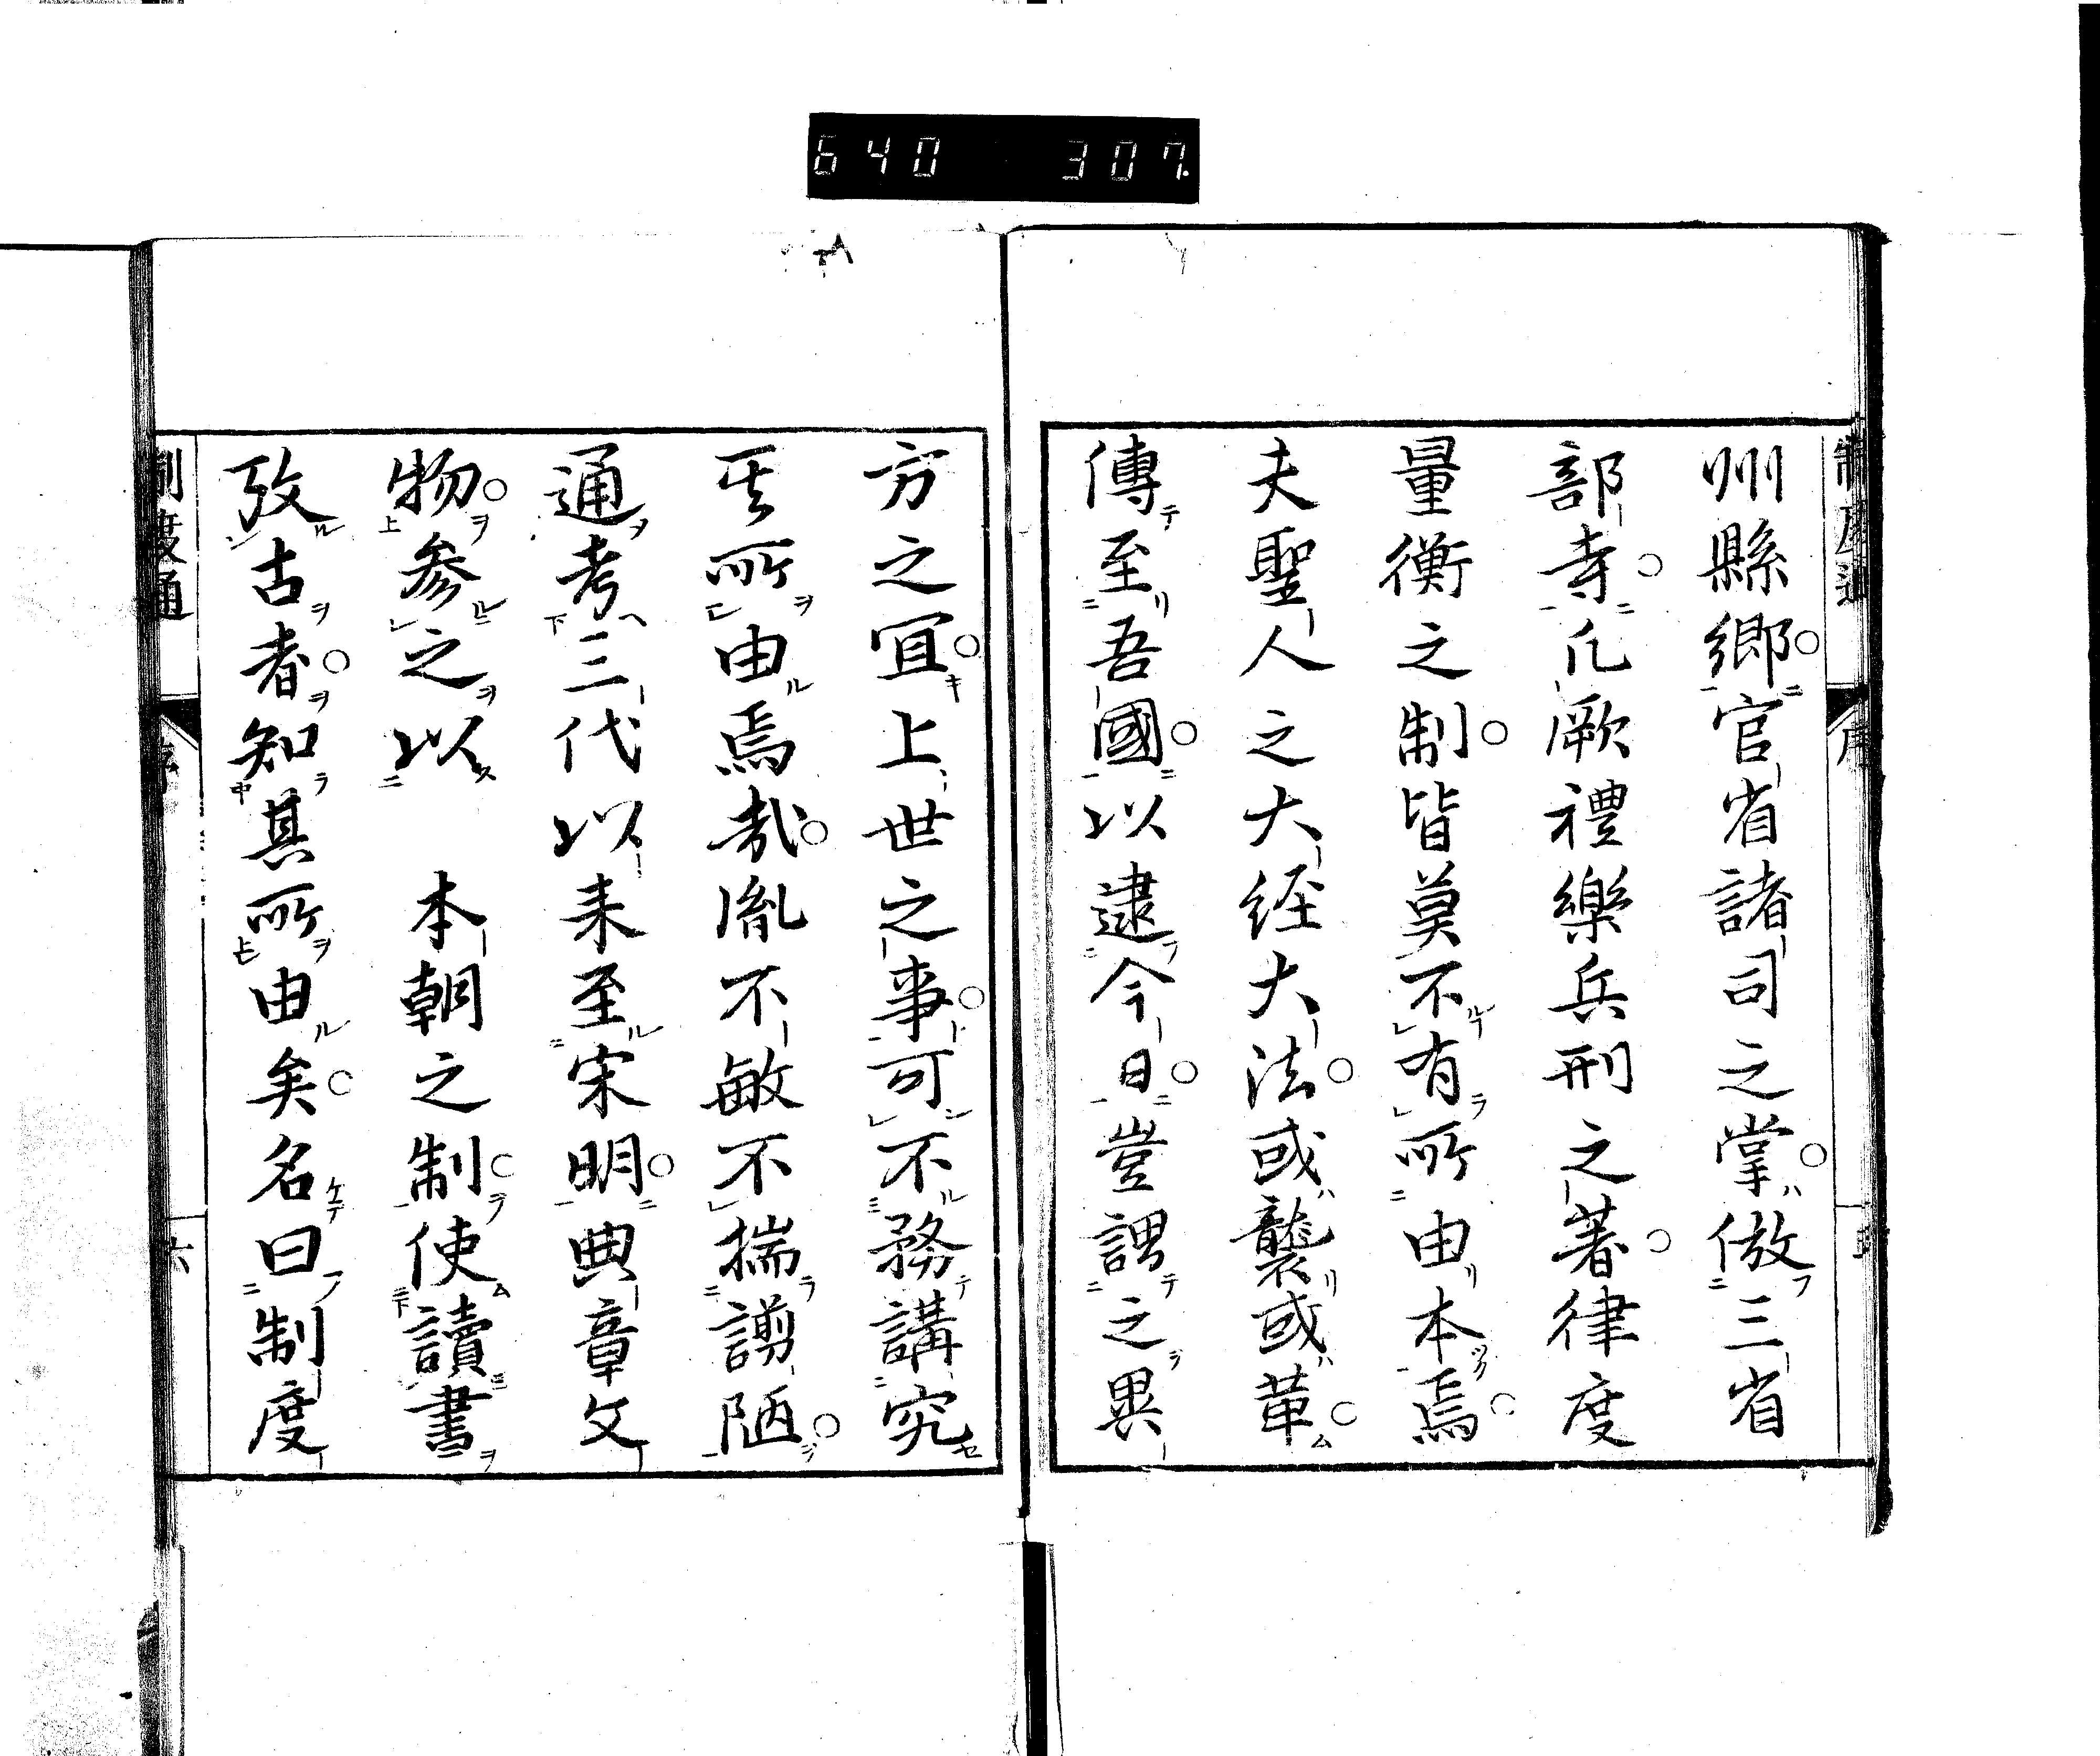 640 307
州縣鄉官省諸司之掌倣三省
部寺凡厥禮樂兵刑之著律度
量衡之制皆莫不有所由本焉
夫聖人之大経大法或襲或革
傳至吾國以逮今日豈謂之異
方之冝上世之事可不務講究
其所由焉哉胤不敏不揣謭陋
通考三代以来至宋明典章文
物参之以　本朝之制使讀書
攷古者知其所由矣名曰制度
制度通
序
六